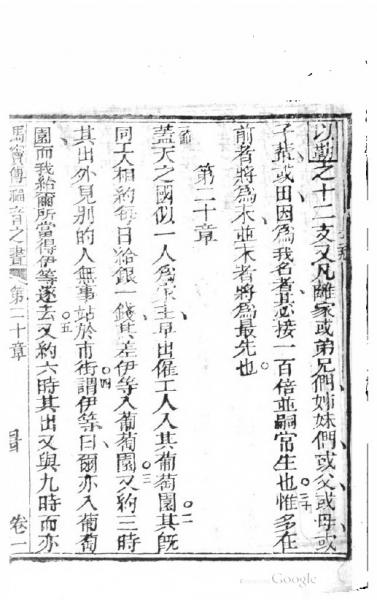 以勒之十二支又凡離家或弟兄們姊妹們或父或母或
子輩或田因為我名者其必接一百倍並嗣常生也惟多在
三十
前者將為末並末者將為最先也
第二十章
節
蓋天之國似一人為家主早出僱工人入其葡萄園其旣
二
同工人相約每日給銀一錢其差伊等入葡萄園又約三時
三
其出外見別的人無事站於市街謂伊等曰爾亦入葡萄
四
園而我給爾所當得伊等遂去又約六時其出又與九時而亦
五
馬竇傳福音之書 第二十章 卷一
Google